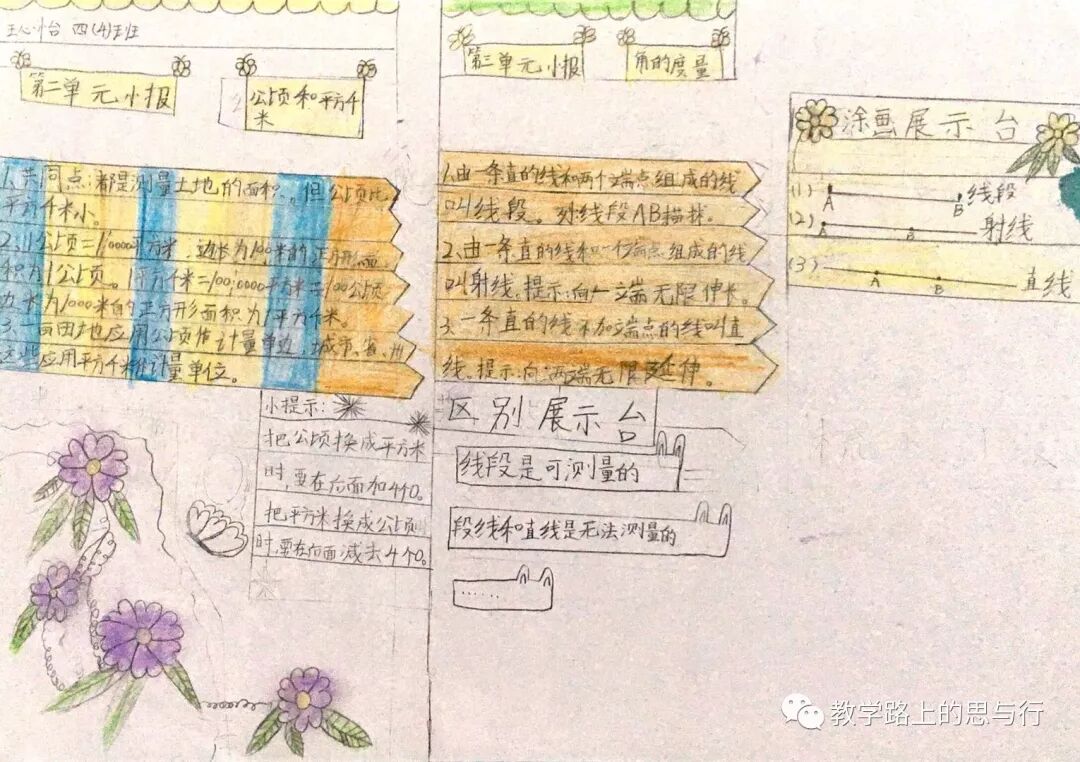 王心怡 四(4)班
第二单元小报
公顷和平方千
米
1、共同点:都是测量土地的面积。但公顷比
平方千米小。
2、1公顷=10000平方米,边长为100米的正方形面
积为1公顷。1平方千米=1000000平方米=100公顷
边长为1000米的正方形面积为1平方千米。
3、一亩田地应用公顷作计量单位,城市、省、州
这些应用平方千米作计量单位。
小提示:
把公顷换成平方米
时,要在后面加4个0。
把平方米换成公顷
时,要在后面减去4个0。
第三单元小报
角的度量
1.由一条直的线和两个端点组成的线
叫线段。如线段AB
2、由一条直的线和一个端点组成的线
叫射线。提示:向一端无限伸长。
3、一条直的线不加端点的线叫直
线。提示:向两端无限延伸。
区别展示台
线段是可测量的
段线和直线是无法测量的
……
涂画展示台
(1) A B 线段
(2) A B 射线
(3) A B 直线
教学路上的思与行